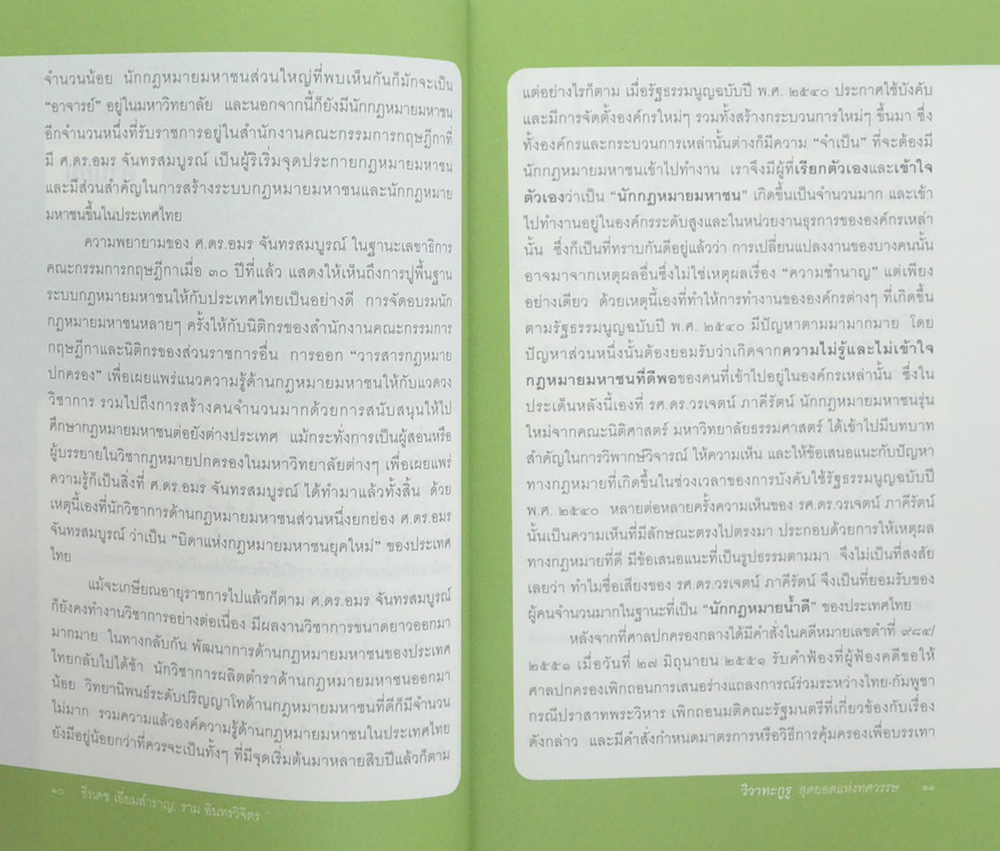 จำนวนน้อย นักกฎหมายมหาชนส่วนใหญ่ที่พบเห็นกันก็มักจะเป็น
“อาจารย์” อยู่ในมหาวิทยาลัย และนอกจากนี้ก็ยังมีนักกฎหมายมหาชน
อีกจำนวนหนึ่งที่รับราชการอยู่ในสำนักงานคณะกรรมการกฤษฎีกาที่
มี ศ.ดร.อมร จันทรสมบูรณ์ เป็นผู้ริเริ่มจุดประกายกฎหมายมหาชน
และมีส่วนสำคัญในการสร้างระบบกฎหมายมหาชนและนักกฎหมาย
มหาชนขึ้นในประเทศไทย
ความพยายามของ ศ.ดร.อมร จันทรสมบูรณ์ ในฐานะเลขาธิการ
คณะกรรมการกฤษฎีกาเมื่อ ๓๐ ปีที่แล้ว แสดงให้เห็นถึงการปูพื้นฐาน
ระบบกฎหมายมหาชนให้กับประเทศไทยเป็นอย่างดี การจัดอบรมนัก
กฎหมายมหาชนหลายๆ ครั้งให้กับนิติกรของสำนักงานคณะกรรมการ
กฤษฎีกาและนิติกรของส่วนราชการอื่น การออก “วารสารกฎหมาย
ปกครอง” เพื่อเผยแพร่แนวความรู้ด้านกฎหมายมหาชนให้กับแวดวง
วิชาการ รวมไปถึงการสร้างคนจำนวนมากด้วยการสนับสนุนให้ไป
ศึกษากฎหมายมหาชนต่อยังต่างประเทศ แม้กระทั่งการเป็นผู้สอนหรือ
ผู้บรรยายในวิชากฎหมายปกครองในมหาวิทยาลัยต่างๆ เพื่อเผยแพร่
ความรู้ก็เป็นสิ่งที่ ศ.ดร.อมร จันทรสมบูรณ์ ได้ทำมาแล้วทั้งสิ้น ด้วย
เหตุนี้เองที่นักวิชาการด้านกฎหมายมหาชนส่วนหนึ่งยกย่อง ศ.ดร.อมร
จันทรสมบูรณ์ ว่าเป็น “บิดาแห่งกฎหมายมหาชนยุคใหม่” ของประเทศ
ไทย
แม้จะเกษียณอายุราชการไปแล้วก็ตาม ศ.ดร.อมร จันทรสมบูรณ์
ก็ยังคงทำงานวิชาการอย่างต่อเนื่อง มีผลงานวิชาการขนาดยาวออกมา
มากมาย ในทางกลับกัน พัฒนาการด้านกฎหมายมหาชนของประเทศ
ไทยกลับไปได้ช้า นักวิชาการผลิตตำราด้านกฎหมายมหาชนออกมา
น้อย วิทยานิพนธ์ระดับปริญญาโทด้านกฎหมายมหาชนที่ดีก็มีจำนวน
ไม่มาก รวมความแล้วองค์ความรู้ด้านกฎหมายมหาชนในประเทศไทย
ยังมีอยู่น้อยกว่าที่ควรจะเป็นทั้งๆ ที่มีจุดเริ่มต้นมาหลายสิบปีแล้วก็ตาม
๑๐ ธีรเดช เอี่ยมสำราญ, ราม อินทรวิจิตร
แต่อย่างไรก็ตาม เมื่อรัฐธรรมนูญฉบับปี พ.ศ. ๒๕๔๐ ประกาศใช้บังคับ
และมีการจัดตั้งองค์กรใหม่ๆ รวมทั้งสร้างกระบวนการใหม่ๆ ขึ้นมา ซึ่ง
ทั้งองค์กรและกระบวนการเหล่านั้นต่างก็มีความ “จำเป็น” ที่จะต้องมี
นักกฎหมายมหาชนเข้าไปทำงาน เราจึงมีผู้ที่เรียกตัวเองและเข้าใจ
ตัวเองว่าเป็น “นักกฎหมายมหาชน” เกิดขึ้นเป็นจำนวนมาก และเข้า
ไปทำงานอยู่ในองค์กรระดับสูงและในหน่วยงานธุรการขององค์กรเหล่า
นั้น ซึ่งก็เป็นที่ทราบกันดีอยู่แล้วว่า การเปลี่ยนแปลงงานของบางคนนั้น
อาจมาจากเหตุผลอื่นซึ่งไม่ใช่เหตุผลเรื่อง “ความชำนาญ” แต่เพียง
อย่างเดียว ด้วยเหตุนี้เองที่ทำให้การทำงานขององค์กรต่างๆ ที่เกิดขึ้น
ตามรัฐธรรมนูญฉบับปี พ.ศ. ๒๕๔๐ มีปัญหาตามมามากมาย โดย
ปัญหาส่วนหนึ่งนั้นต้องยอมรับว่าเกิดจากความไม่รู้และไม่เข้าใจ
กฎหมายมหาชนที่ดีพอของคนที่เข้าไปอยู่ในองค์กรเหล่านั้น ซึ่งใน
ประเด็นหลังนี้เองที่ รศ.ดร.วรเจตน์ ภาคีรัตน์ นักกฎหมายมหาชนรุ่น
ใหม่จากคณะนิติศาสตร์ มหาวิทยาลัยธรรมศาสตร์ ได้เข้าไปมีบทบาท
สำคัญในการวิพากษ์วิจารณ์ ให้ความเห็น และให้ข้อเสนอแนะกับปัญหา
ทางกฎหมายที่เกิดขึ้นในช่วงเวลาของการบังคับใช้รัฐธรรมนูญฉบับปี
พ.ศ. ๒๕๔๐ หลายต่อหลายครั้งความเห็นของ รศ.ดร.วรเจตน์ ภาคีรัตน์
นั้นเป็นความเห็นที่มีลักษณะตรงไปตรงมา ประกอบด้วยการให้เหตุผล
ทางกฎหมายที่ดี มีข้อเสนอแนะที่เป็นรูปธรรมตามมา จึงไม่เป็นที่สงสัย
เลยว่า ทำไมชื่อเสียงของ รศ.ดร.วรเจตน์ ภาคีรัตน์ จึงเป็นที่ยอมรับของ
ผู้คนจำนวนมากในฐานะที่เป็น “นักกฎหมายน้ำดี” ของประเทศไทย
หลังจากที่ศาลปกครองกลางได้มีคำสั่งในคดีหมายเลขดำที่ ๙๘๔/
๒๕๕๑ เมื่อวันที่ ๒๗ มิถุนายน ๒๕๕๑ รับคำฟ้องที่ผู้ฟ้องคดีขอให้
ศาลปกครองเพิกถอนการเสนอร่างแถลงการณ์ร่วมระหว่างไทย-กัมพูชา
กรณีปราสาทพระวิหาร เพิกถอนมติคณะรัฐมนตรีที่เกี่ยวข้องกับเรื่อง
ดังกล่าว และมีคำสั่งกำหนดมาตรการหรือวิธีการคุ้มครองเพื่อบรรเทา
วิวาทะกูรู สุดยอดแห่งทศวรรษ ๑๑